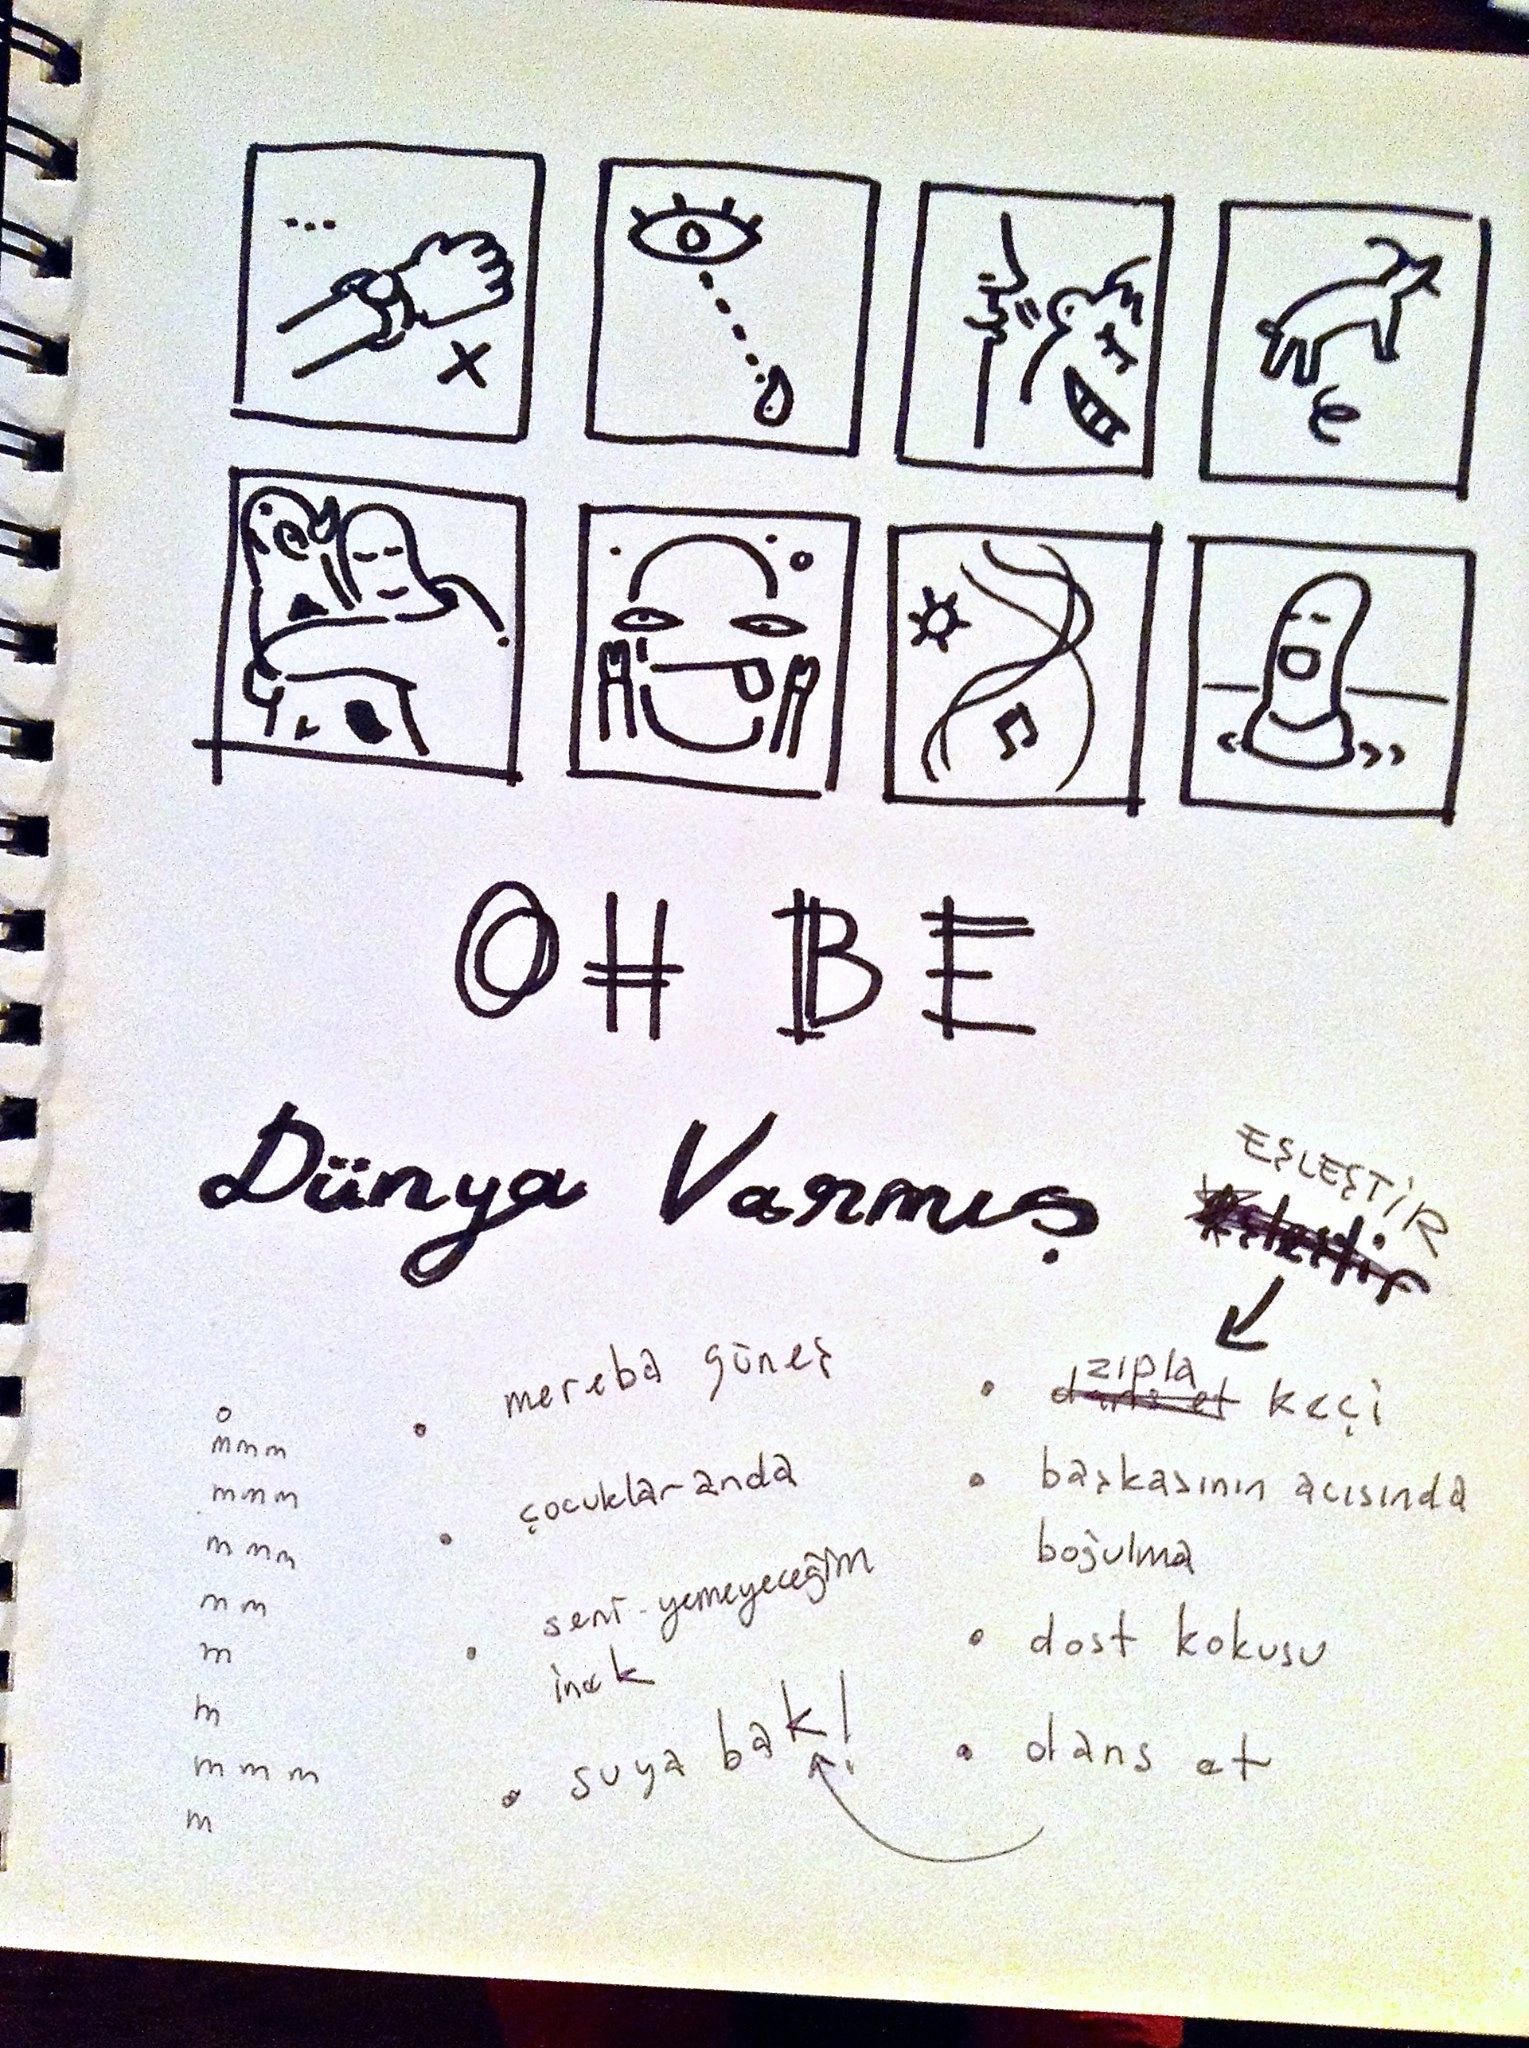 OH BE
Dünya Varmış
EŞLEŞTİR
mereba güneş
çocuklar anda
seni yemeyeceğim
inek
suya bak!
zıpla
dans et keçi
başkasının acısında
boğulma
dost kokusu
dans et
o
mmm
mmm
mmm
mm
m
m
mmm
m